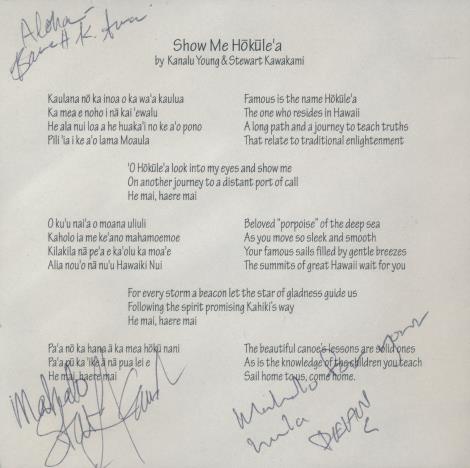 Aloha -
K.
Show Me Hōkūle'a
by Kanalu Young & Stewart Kawakami
Kaulana nō ka inoa o ka wa'a kaulua
Ka mea e noho i nā kai 'ewalu
He ala nui loa a he huaka'i no ke a'o pono
Pili 'ia i ke a'o lama Moaula
Famous is the name Hōkūle'a
The one who resides in Hawaii
A long path and a journey to teach truths
That relate to traditional enlightenment
'O Hōkūle'a look into my eyes and show me
On another journey to a distant port of call
He mai, haere mai
O ku'u nai'a o moana uliuli
Kaholo ia me ke'ano mahamoemoe
Kilakila nā pe'a e ka'olu ka moa'e
Alia nou'o nā nu'u Hawaiki Nui
Beloved "porpoise" of the deep sea
As you move so sleek and smooth
Your famous sails filled by gentle breezes
The summits of great Hawaii wait for you
For every storm a beacon let the star of gladness guide us
Following the spirit promising Kahiki's way
He mai, haere mai
Pa'a nō ka hana ā ka mea hōkū nani
Pa'a pū ka 'ike ā nā pua lei e
He mai, haere mai
The beautiful canoe's lessons are solid ones
As is the knowledge of the children you teach
Sail home to us, come home.
Mahalo
Mahalo for your